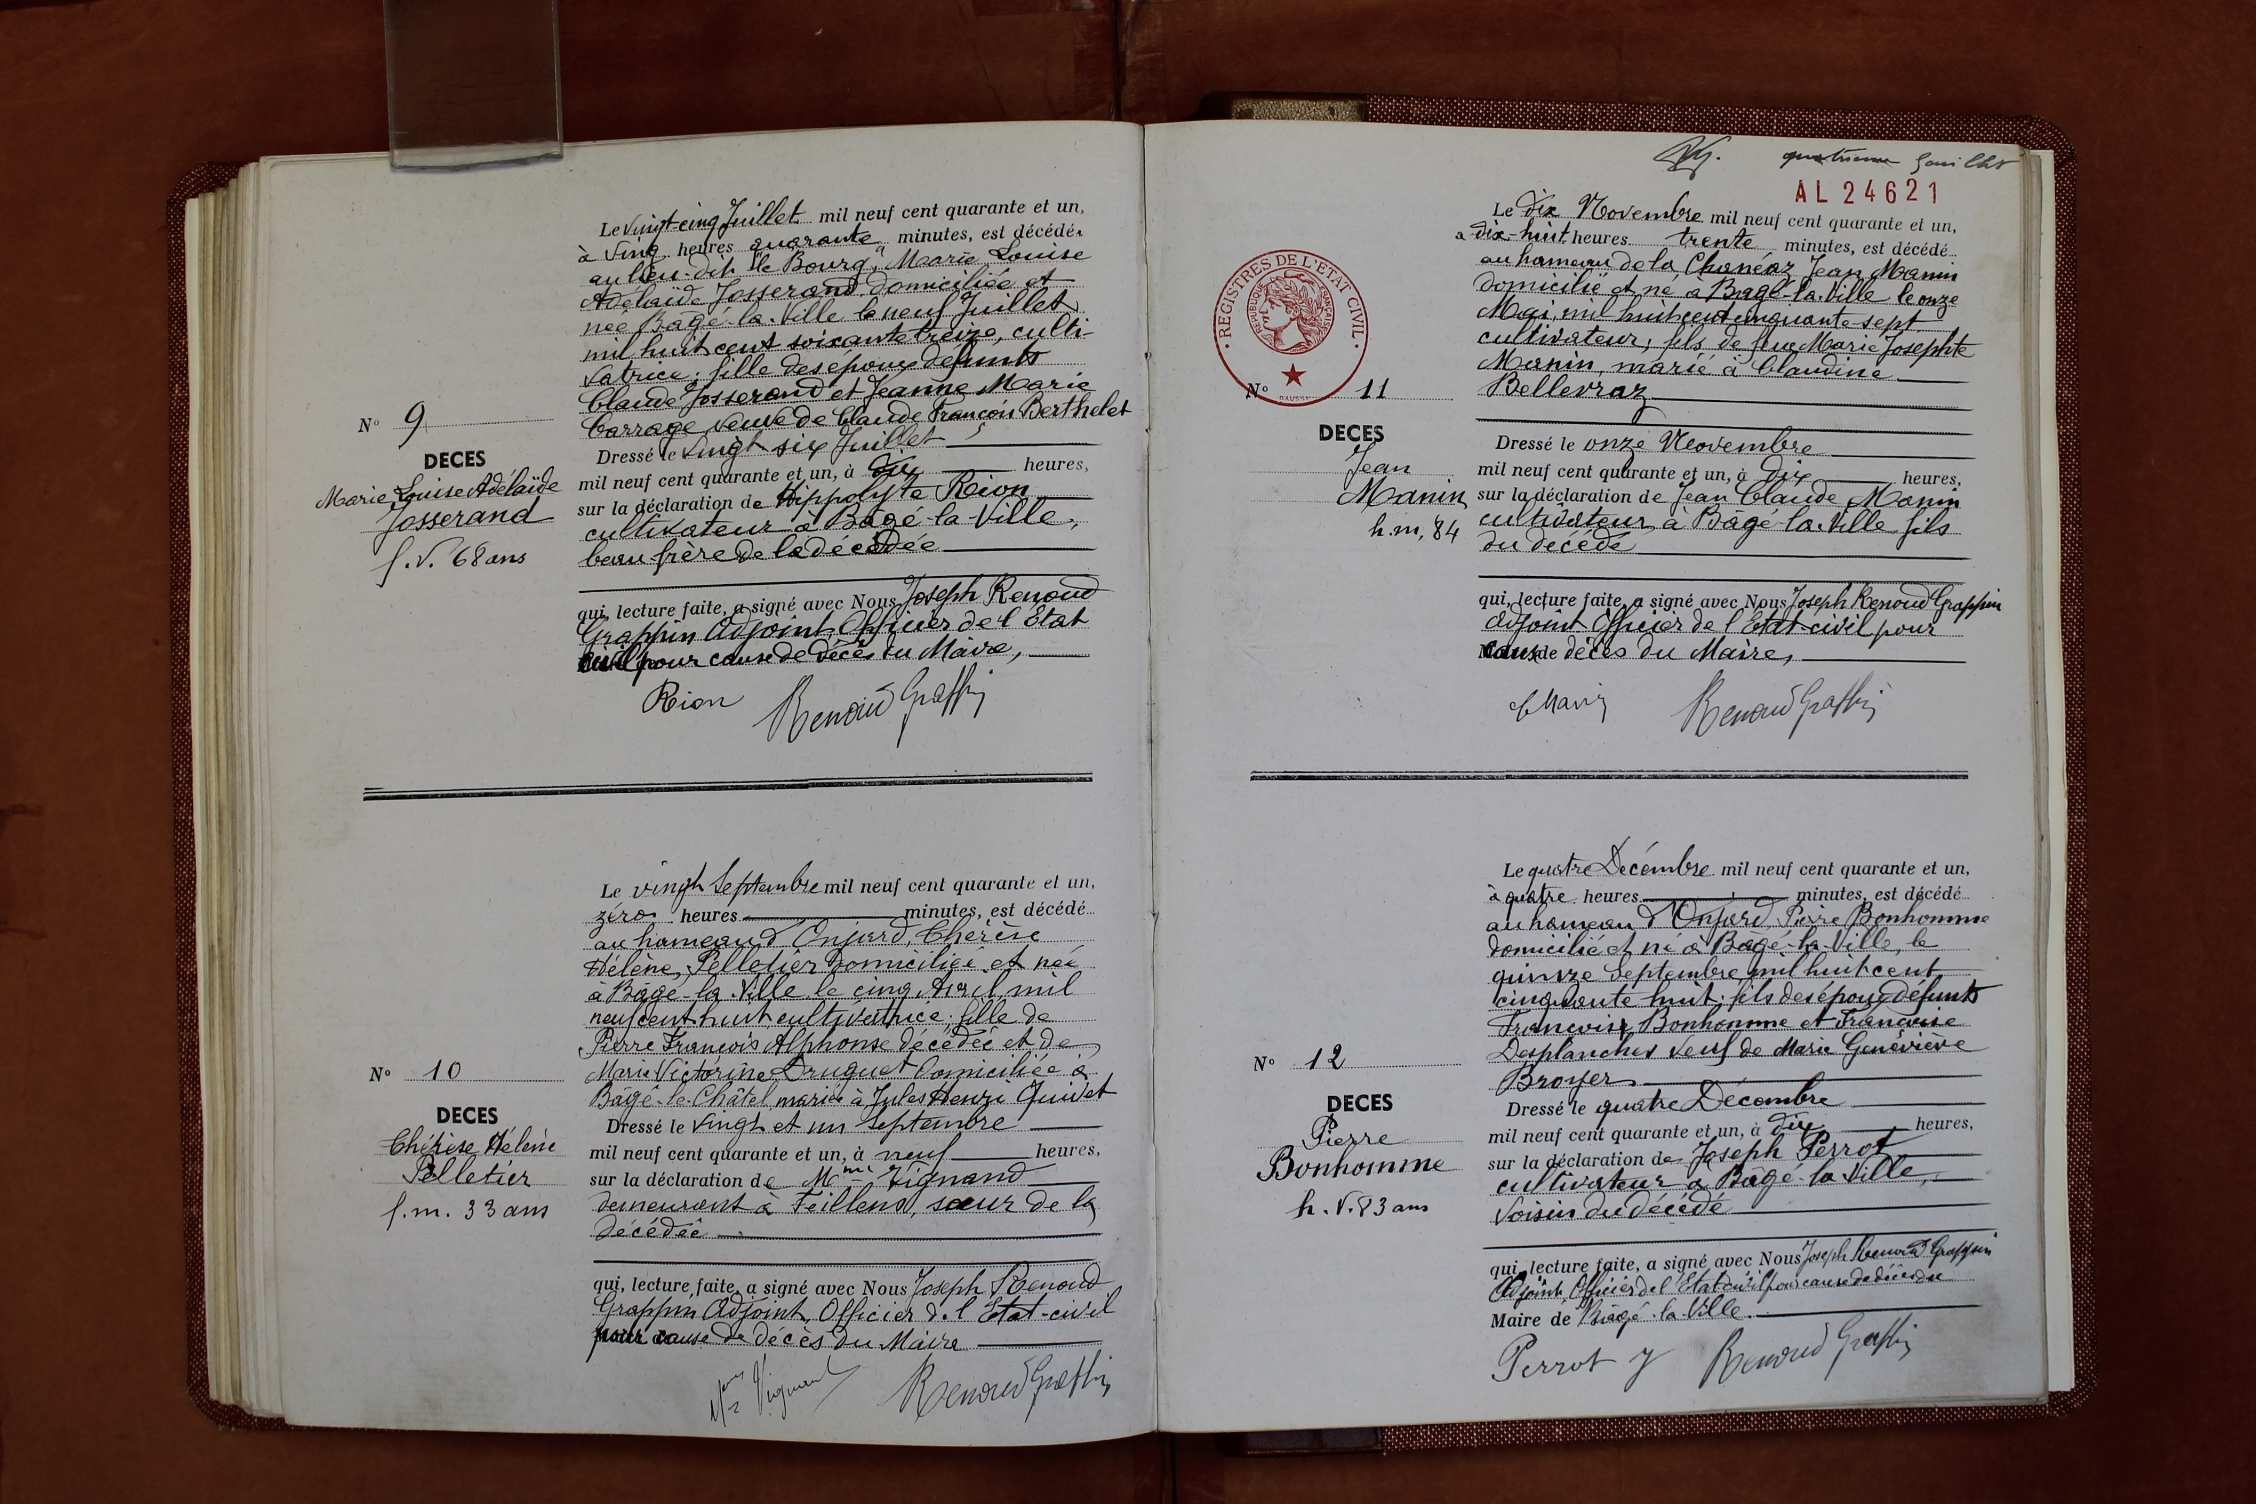 Le vingt-cinq Juillet mil neuf cent quarante et un,
à cinq heures quarante minutes, est décédée
au lieu-dit "le Bourg", Marie Louise
Adélaïde Josserand domiciliée et
née Bâgé-la-Ville le neuf Juillet
mil huit cent soixante treize, culti-
vatrice; fille des époux défunts
Claude Josserand et Jeanne Marie
Carrage veuve de Claude François Berthelet
N° 9
DECES
Marie Louise Adélaïde
Josserand
f. v. 68 ans
Dressé le vingt six Juillet
mil neuf cent quarante et un, à dix heures,
sur la déclaration de Hippolyte Rion
cultivateur à Bâgé-la-Ville,
beau frère de la décédée
qui, lecture faite, a signé avec Nous Joseph Renoud
Grappin Adjoint, Officier de l'Etat
civil pour cause de décès du Maire,
Rion Renoud Grappin
Le vingt Septembre mil neuf cent quarante et un,
zéro heures minutes, est décédé
au hameau d'Onjard, Thérèse
Hélène Pelletier domiciliée et née
à Bâgé-la-Ville le cinq Avril mil
neuf cent huit, cultivatrice; fille de
Pierre François Alphonse décédée et de
Marie Victorine Druguet domiciliée à
Bâgé-le-Châtel, mariée à Jules Henri Guidet
N° 10
DECES
Thérèse Hélène
Pelletier
f. m. 33 ans
Dressé le vingt et un septembre
mil neuf cent quarante et un, à neuf heures,
sur la déclaration de Mme Vignand
demeurant à Feillens, sœur de la
décédée
qui, lecture faite, a signé avec Nous Joseph Renoud
Grappin Adjoint, Officier de l'Etat-civil
pour cause de décès du Maire
Renoud Grappin
AL 24621
Le dix Novembre mil neuf cent quarante et un,
a dix-huit heures trente minutes, est décédé
au hameau de la Chanéaz Jean Manin
domicilié et né à Bâgé-la-Ville le onze
Mai mil huit cent cinquante-sept
cultivateur, fils de feue Marie Josephte
Manin, marié à Claudine
Bellevraz
REGISTRES DE L'ETAT CIVIL
REPUBLIQUE FRANÇAISE
N° 11
DECES
Jean
Manin
h. m, 84
Dressé le onze Novembre
mil neuf cent quarante et un, à dix heures,
sur la déclaration de Jean Claude Manin
cultivateur à Bâgé-la-Ville fils
du décédé
qui, lecture faite, a signé avec Nous Joseph Renoud Grappin
Adjoint Officier de l'Etat-civil pour
cause de décès du Maire,
Renoud Grappin
Le quatre Décembre mil neuf cent quarante et un,
à quatre heures minutes, est décédé
au hameau d'Onjard, Pierre Bonhomme
domicilié et né à Bâgé-la-Ville, le
quinze Septembre mil huit cent
cinquante huit; fils des époux défunts
François Bonhomme et Françoise
Desplanches veuf de Marie Geneviève
Broyer
N° 12
DECES
Pierre
Bonhomme
h. v. 83 ans
Dressé le quatre Décembre
mil neuf cent quarante et un, à dix heures,
sur la déclaration de Joseph Perrot
cultivateur à Bâgé-la-Ville,
voisin du décédé
qui, lecture faite, a signé avec Nous Joseph Renoud Grappin
Adjoint, Officier de l'Etat civil pour cause de décès du
Maire de Bâgé-la-Ville.
Perrot J Renoud Grappin